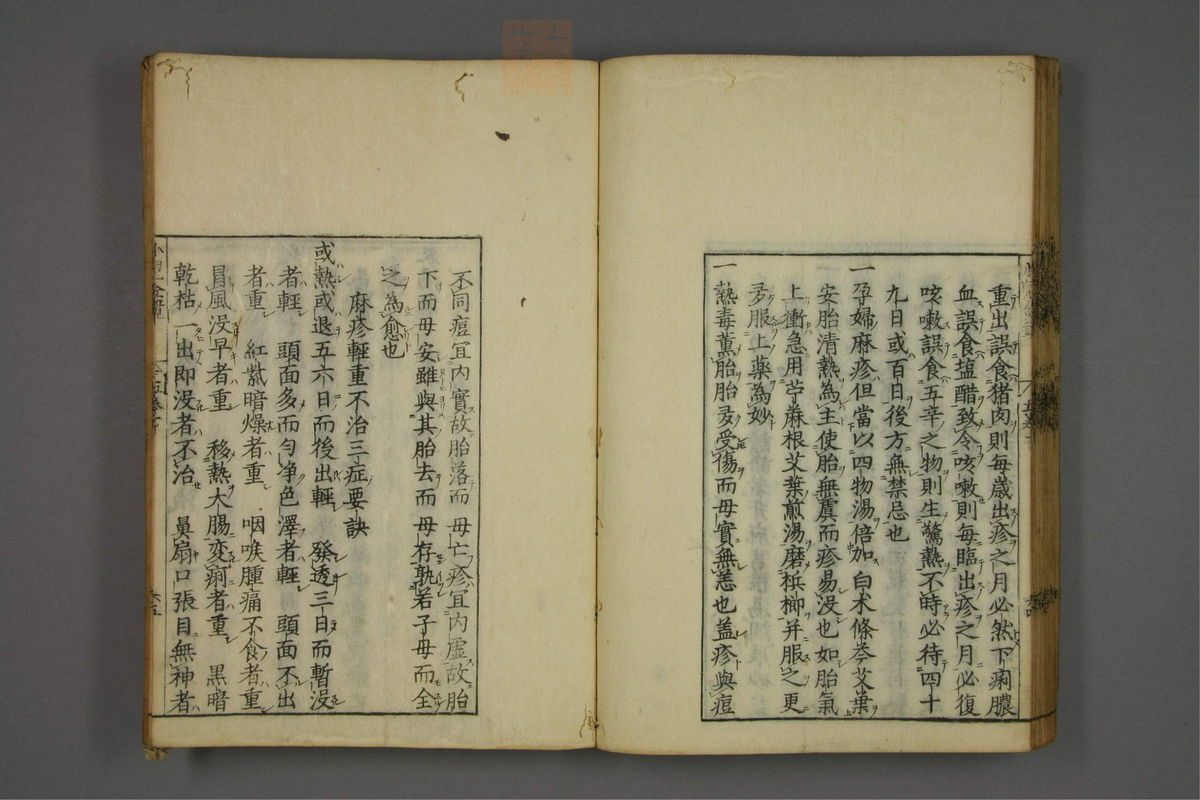 重出誤食猪肉則毎歳出疹之月必然下痢膿
血誤食塩醋致令咳嗽則毎臨出疹之月必復
咳嗽誤食五辛之物則生驚熱不時必待四十
九日或百日後方無禁忌也
一孕婦麻疹但當以四物湯倍加白朮條芩艾葉
安胎清熱為主使胎無虞而疹易没也如胎氣
上衝急用苧麻根艾葉煎湯磨檳榔并服之更
多服上藥為妙
一熱毒薫胎胎多受傷而母實無恙也盖疹與痘
不同痘宜内實故胎落而母亡疹宜内虚故胎
下而母安雖與其胎去而母存孰若子母而全
之為愈也
麻疹輕重不治三症要訣
或熱或退五六日而後出輕　發透三日而暫没
者輕　頭面多而匀净色澤者輕　頭面不出
者重　紅紫暗燥者重　咽喉腫痛不食者重
冒風没早者重　移熱大腸変痢者重　黒暗
乾枯一出即没者不治　鼻扇口張目無神者